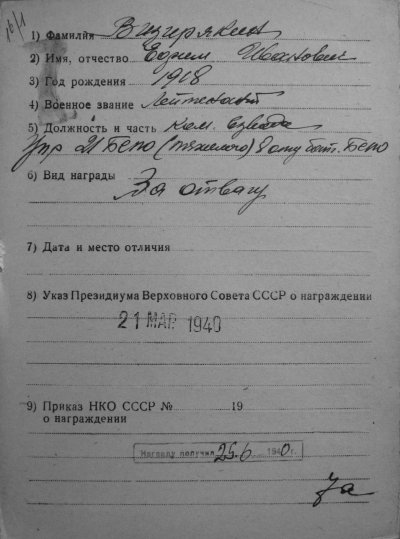 16/1
1) Фамилия Визирякин
2) Имя, отчество Ефим Иванович
3) Год рождения 1918
4) Военное звание Лейтенант
5) Должность и часть Ком. взвода
Упр 21 БЕПО (тяжелого) 8 отд. бат. БЕПО
6) Вид награды
За отвагу
7) Дата и место отличия
8) Указ Президиума Верховного Совета СССР о награждении
21 МАР 1940
9) Приказ НКО СССР № 19
о награждении
Награду получил 25.6 1940 г.